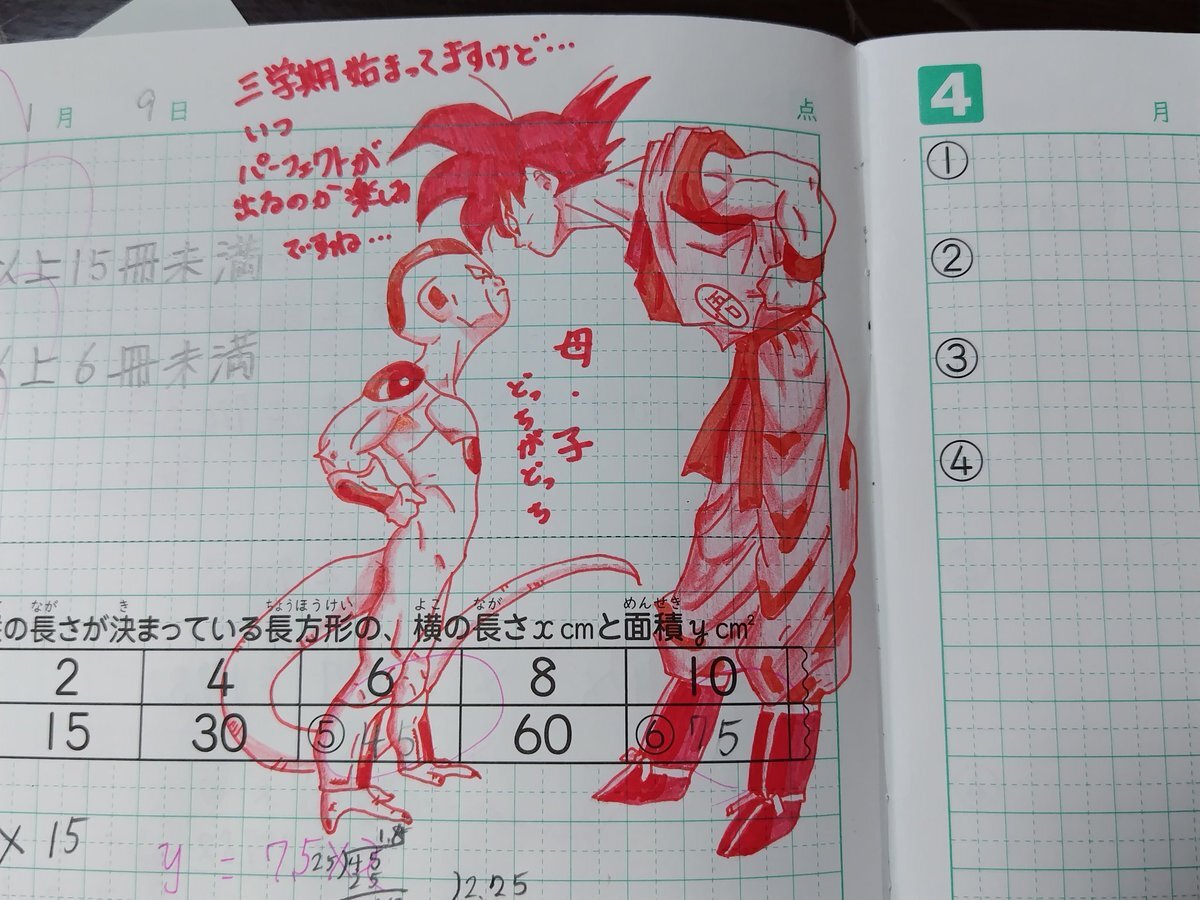 三学期始まってますけど…
いつ
パーフェクトが
出るのか楽しみ
ですね…
1月 9日
点
以上15冊未満
以上6冊未満
母・子
どっちがどっち
の長さが決まっている長方形の、横の長さx cmと面積y cm²
なが き ちょうほうけい よこ なが めんせき
2 4 6 8 10
15 30 ⑤ 45 60 ⑥ 75
× 15
y = 75
1.8
25)45
25
)2.25
4
月
①
②
③
④